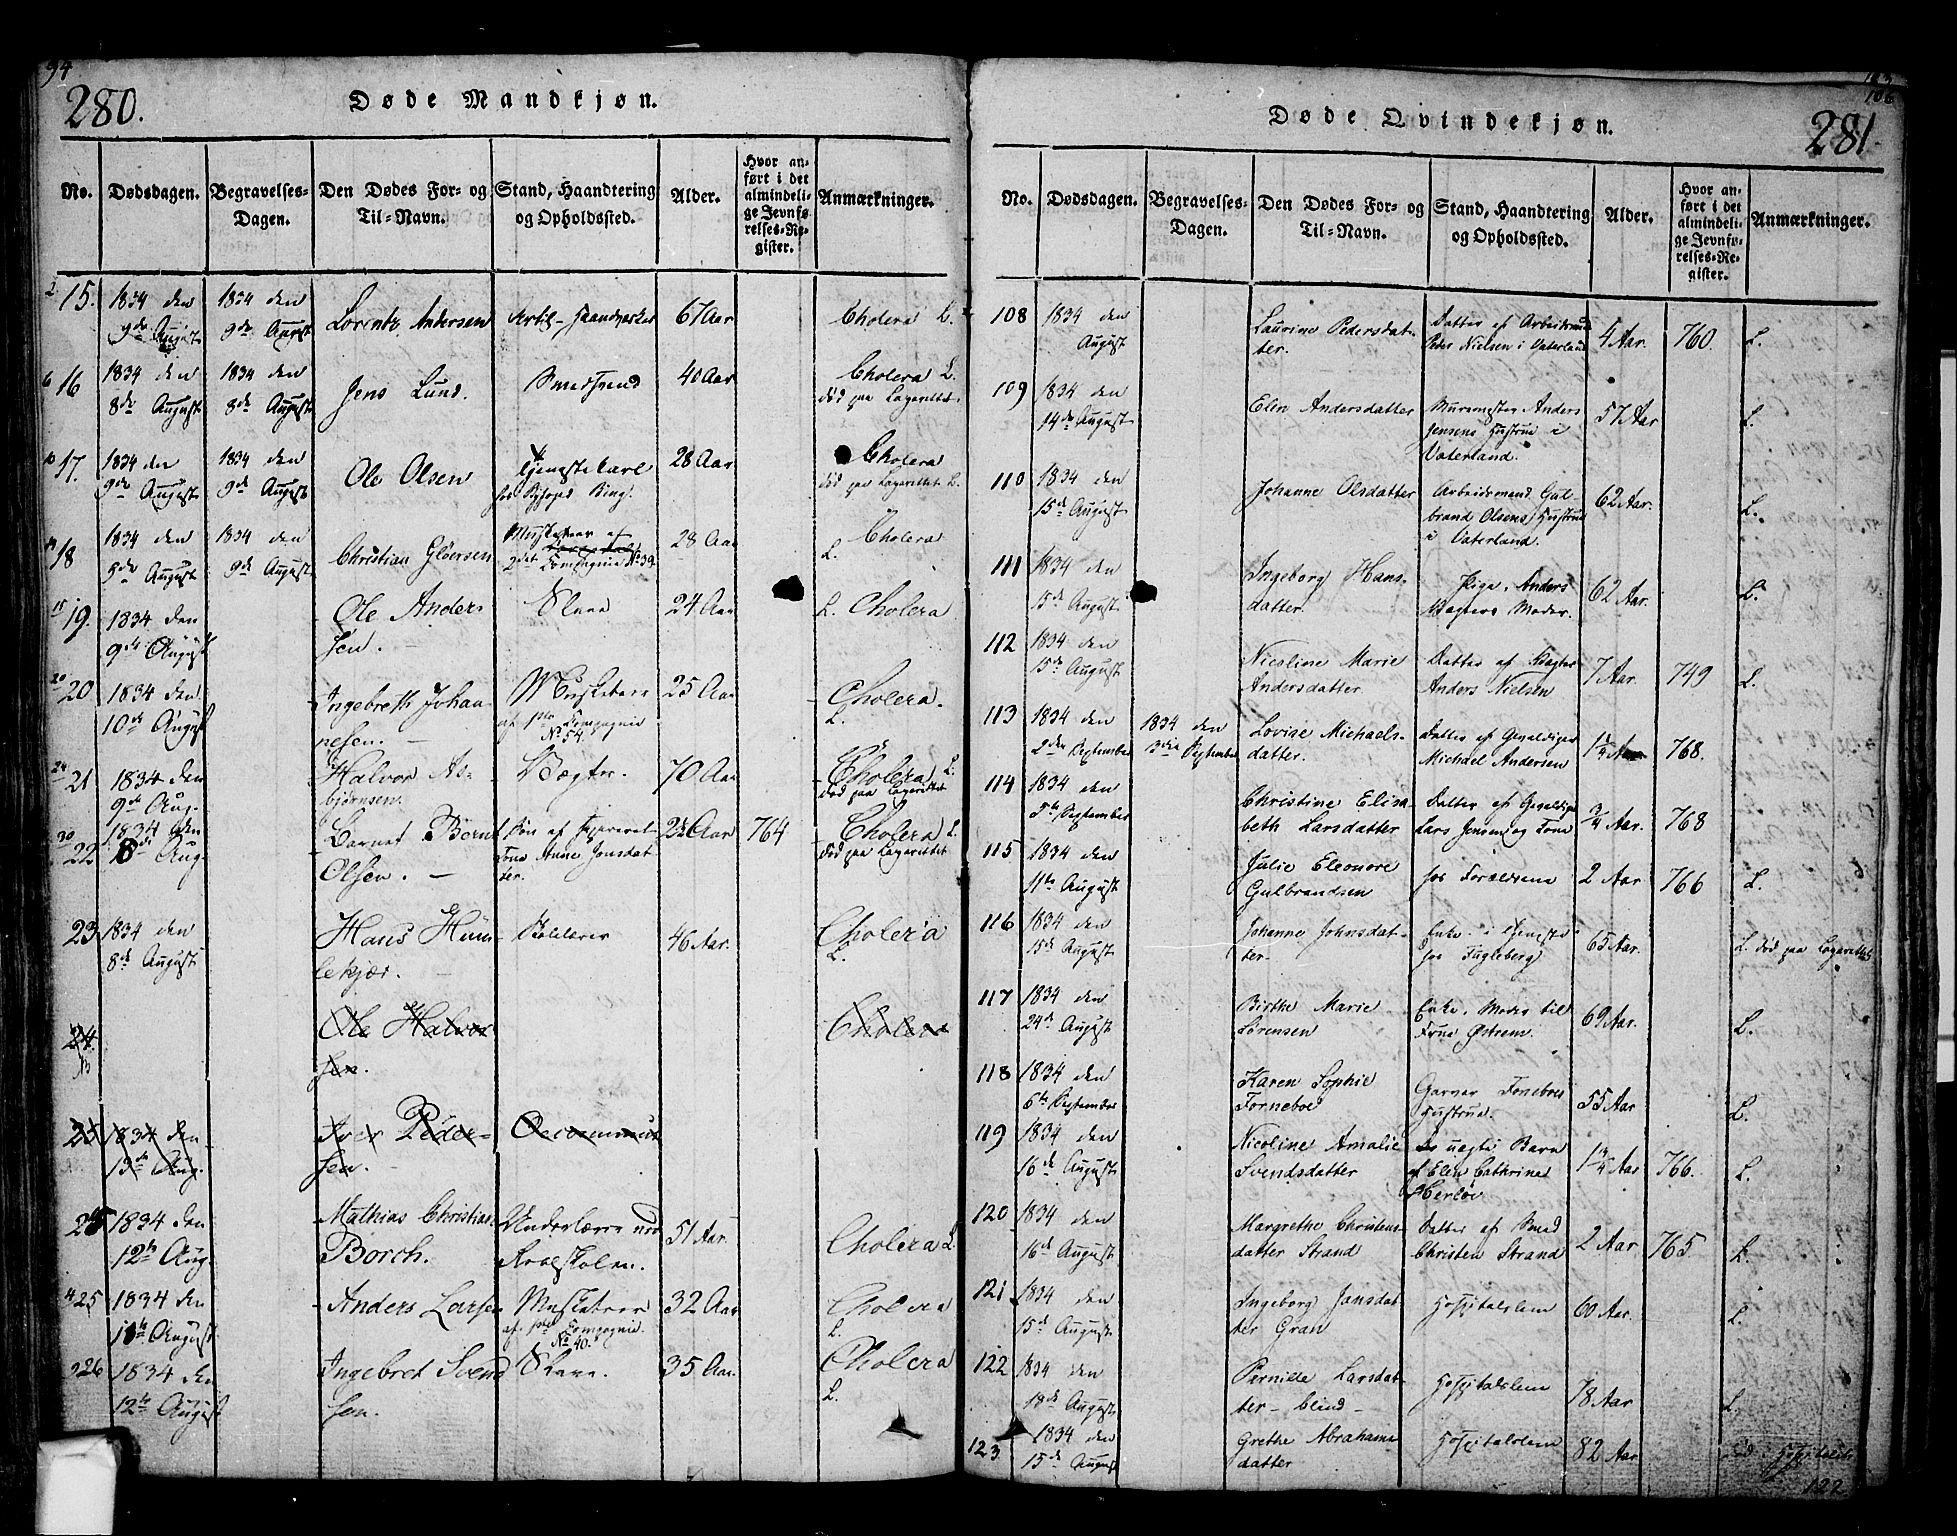 94
280.
Døde Mandkjøn.
No.
Dødsdagen.
Begravelses-
Dagen.
Den Dødes For- og
Til-Navn.
Stand, Haandtering
og Opholdssted.
Alder.
Hvor an-
ført i det
almindeli-
ge Jevnfø-
relses-Re-
gister.
Anmærkninger.
15. 1834 den 1834 den Lorentz Andersen 67 Aar Cholera L.
9de August 9de August
16 1834 den 1834 den Jens Lund. Smedsvend 40 Aar Cholera L.
8de August 8de August død paa Lazarettet.
17. 1834 den 1834 den Ole Olsen Tjenestekarl 28 Aar Cholera
9de August 9de August død paa Lazarettet L.
18 1834 den 1834 den Christian Gløersen Musketeer af 28 Aar Cholera
9de August 9de August 2det Compagnie No 39 L.
19. 1834 den Ole Ander- Slave 24 Aar L. Cholera
9de August sen.
20 1834 den Ingebreth Johan- Musketeer 25 Aar Cholera.
10de August nesen. af 1ste Compagnie No 54. L.
21 1834 den Halvor As- Vægter. 70 Aar Cholera L.
9de Aug. bjørnsen. død paa Lazarettet
22 1834 den Bernt Søn af 2½ Aar 764 Cholera L.
8de Aug. Olsen. Anne Jonsdat- død paa Lazarettet
ter.
23 1834 den Hans Hum- Skolelærer 46 Aar. Cholera
8de August lekjær. L.
24. Ole Halvor- Cholera
sen.
25 1834 den Iver Peder-
13de Aug. sen.
24 1834 den Mathias Christian Underlærer ved 51 Aar. Cholera L.
12te Aug. Borch. Realskolen.
25 1834 den Anders Larsen Musketeer 32 Aar Cholera
August af 1ste Compagnie No 40. L.
26 1834 den Ingebret Svend- Slave. 35 Aar. Cholera
12te August sen. L.
106
281.
Døde Qvindekjøn.
No.
Dødsdagen.
Begravelses-
Dagen.
Den Dødes For- og
Til-Navn.
Stand, Haandtering
og Opholdssted.
Alder.
Hvor an-
ført i det
almindeli-
ge Jevnfø-
relses-Re-
gister.
Anmærkninger.
108 1834 den Laurine Pedersdat- Datter af Arbeidsmand 4 Aar. 760 L.
August ter. Peder Nielsen i Vaterland
109 1834 den Elen Andersdatter Muurmester Anders 57 Aar L.
14de August Jensens Hustrue i
Vaterland.
110 1834 den Johanne Olsdatter Arbeidsmand Gul- 62 Aar. L.
15de August brand Olsens Hustrue
i Vaterland.
111 1834 den Ingeborg Hans- Pige, Anders 62 Aar. L.
15de August datter. Vægters Moder.
112 1834 den Nicoline Marie Datter af Vægter 7 Aar. 749 L.
15de August Andersdatter. Anders Nielsen
113 1834 den 1834 den Lovise Michaels- Datter af Gevaldiger 768.
2den September 3die September datter. Michael Andersen
114 1834 den Christine Elisa- Datter af Gevaldiger ¾ Aar. 768
5te September beth Larsdatter Lars Jensen og Kone
115 1834 den Julie Eleonore hos Forældrene 2 Aar 766 L.
11te August Gulbrandsen
116 1834 den Johanne Johnsdat- Enke i Tjeneste 65 Aar. L. død paa Lazarettet
15de August ter. hos Fugleberg
117 1834 den Birthe Marie Enke, Moder til 69 Aar. L.
24de August Sørensen Østrem.
118 1834 den Karen Sophie Garver Forneboes 55 Aar L.
6te September Forneboe Hustrue.
119 1834 den Nicoline Amalie uægte Barn 1¾ Aar 766. L.
16de August Svendsdatter af Elen Cathrine
120 1834 den Margrethe Christens- Datter af Smed 2 Aar 765 L.
16de August datter Strand Christen Strand
121 1834 den Ingeborg Jansdat- Hospitalslem 60 Aar. L.
15de August ter Gran
122 1834 den Pernille Larsdat- Hospitalslem 78 Aar L.
18de August ter - blind -
123 1834 den Grethe Abrahams- Hospitalslem 82 Aar
15de August datter
122